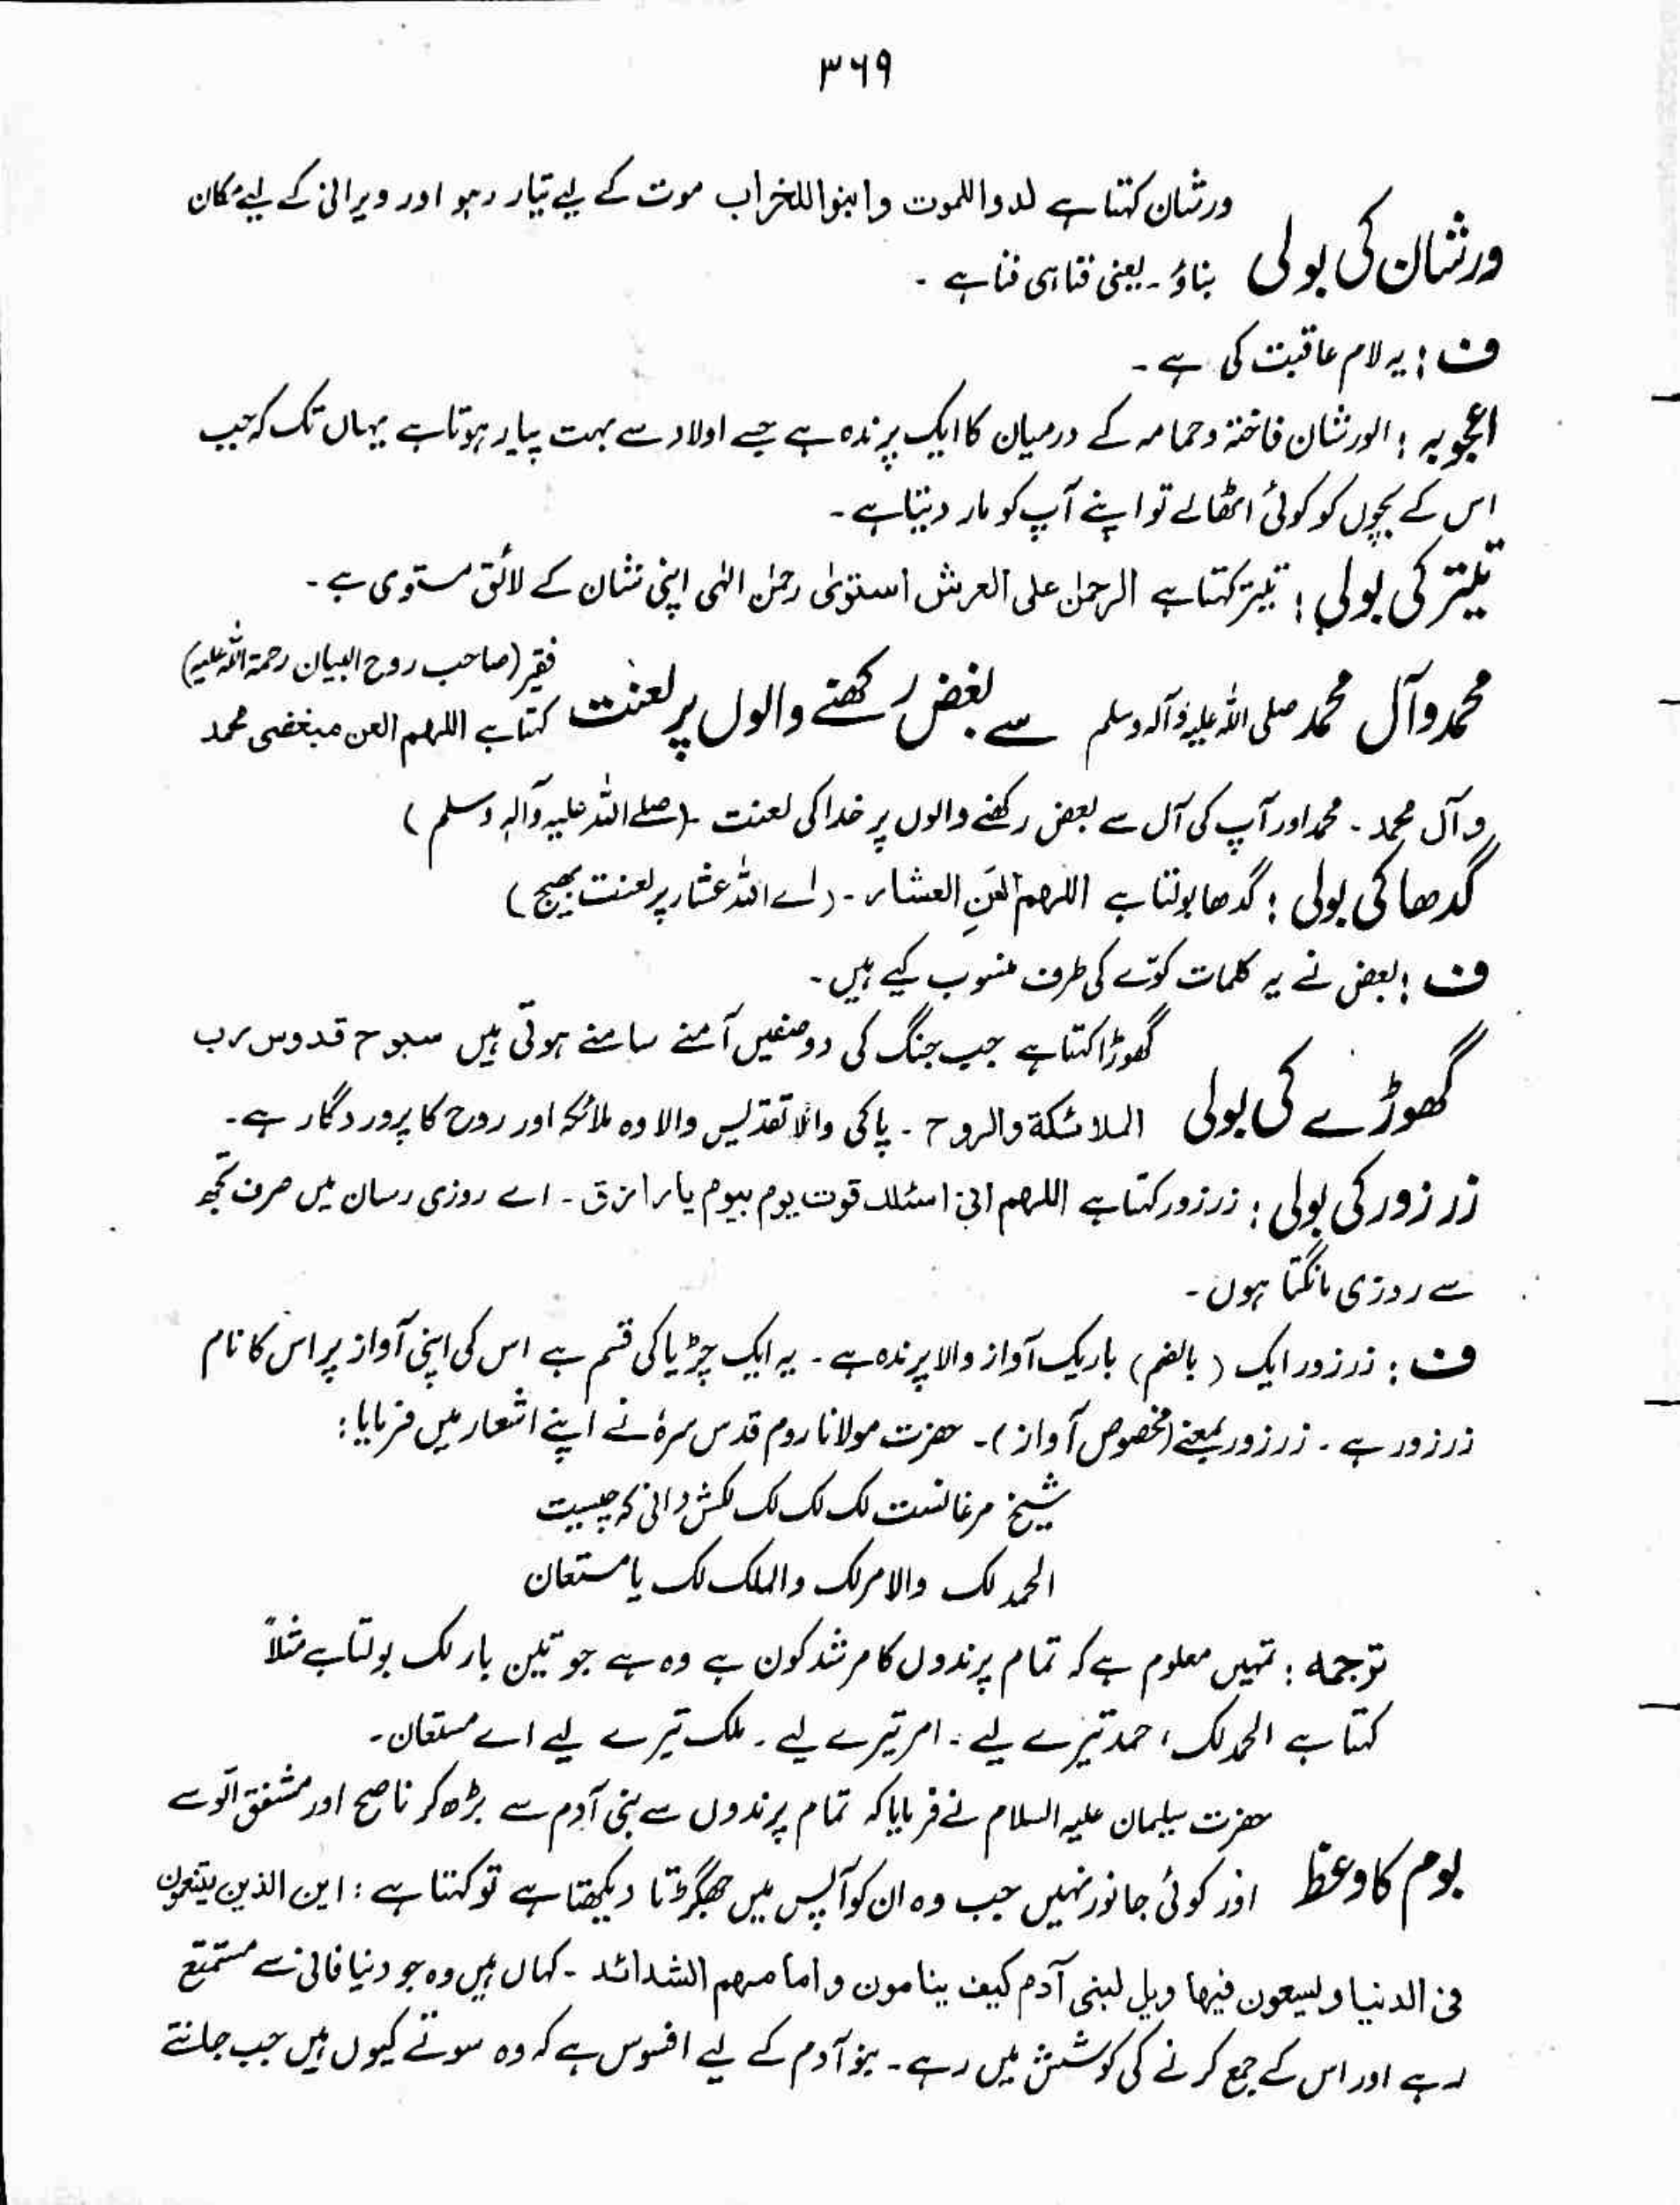 ۳۶۹
ورشان کہتا ہے لدوا للموت وابنوا للخراب موت کے لیے تیار رہو اور ویرانی کے لیے مکان
ورشان کی بولی
بناؤ ۔ یعنی فنا ہی فنا ہے ۔
ف : یہ لام عاقبت کی ہے ۔
اعجوبہ : الورشان فاختہ وحمامہ کے درمیان کا ایک پرندہ ہے جسے اولاد سے بہت پیار ہوتا ہے یہاں تک کہ جب
اس کے بچوں کو کوئی اٹھالے تو اپنے آپ کو مار دیتا ہے ۔
تیتر کی بولی : تیتر کہتا ہے الرحمٰن علی العرش استویٰ رحمٰن الٰہی اپنی شان کے لائق مستوی ہے ۔
محمد وآل محمد صلی اللہ علیہ وآلہ وسلم سے بغض رکھنے والوں پر لعنت
فقیر (صاحب روح البیان رحمۃ اللہ علیہ)
کہتا ہے اللہم العن مبغضی محمد
وآل محمد ۔ محمد اور آپ کی آل سے بغض رکھنے والوں پر خدا کی لعنت ۔ (صلے اللہ علیہ وآلہ وسلم)
گدھا کی بولی : گدھا بولتا ہے اللہم العَنِ العشار ۔ (اے اللہ عشار پر لعنت بھیج)
ف : بعض نے یہ کلمات کوّے کی طرف منسوب کیے ہیں ۔
گھوڑا کہتا ہے جب جنگ کی دو صفیں آمنے سامنے ہوتی ہیں سبوح قدوس رب
گھوڑے کی بولی
الملائکۃ والروح ۔ پاکی والا تقدیس والا وہ ملائکہ اور روح کا پروردگار ہے ۔
زرزور کی بولی : زرزور کہتا ہے اللہم انی اسئلک قوت یوم بیوم یا رازق ۔ اے روزی رسان میں صرف تجھ
سے روزی مانگتا ہوں ۔
ف : زرزور ایک (بالضم) باریک آواز والا پرندہ ہے ۔ یہ ایک چڑیا کی قسم ہے اس کی اپنی آواز پر اس کا نام
زرزور ہے ۔ زرزور بمعنے (مخصوص آواز) ۔ حضرت مولانا روم قدس سرہٗ نے اپنے اشعار میں فرمایا :
شیخ مرغانست لک لک لک لکش دانی کہ چیست
الحمد لک والامر لک والملک لک یا مستعان
ترجمہ : تمہیں معلوم ہے کہ تمام پرندوں کا مرشد کون ہے وہ ہے جو تین بار لک بولتا ہے مثلاً
کہتا ہے الحمد لک ، حمد تیرے لیے ۔ امر تیرے لیے ۔ ملک تیرے لیے اے مستعان ۔
حضرت سلیمان علیہ السلام نے فرمایا کہ تمام پرندوں سے بنی آدم سے بڑھ کر ناصح اور مشفق الّو سے
بوم کا وعظ
اور کوئی جانور نہیں جب وہ ان کو آپس میں جھگڑتا دیکھتا ہے تو کہتا ہے : این الذین یتنعمون
فی الدنیا ویسعون فیھا ویل لبنی آدم کیف ینامون وامامھم الشدائد ۔ کہاں ہیں وہ جو دنیا فانی سے متمتع
رہے اور اس کے جمع کرنے کی کوشش میں رہے ۔ بنو آدم کے لیے افسوس ہے کہ وہ سوتے کیوں ہیں جب جانتے